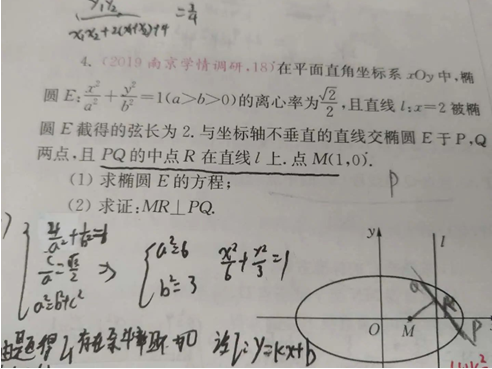 y₁y₂ / x₁x₂+2(x₁+x₂)+4 = 3/4
4.(2019南京学情调研,18)在平面直角坐标系xOy中,椭
圆E:x²/a²+y²/b²=1(a>b>0)的离心率为√2/2,且直线l:x=2被椭
圆E截得的弦长为2.与坐标轴不垂直的直线交椭圆E于P,Q
两点,且PQ的中点R在直线l上.点M(1,0).
(1)求椭圆E的方程;
(2)求证:MR⊥PQ.
P
4/a²+1/b²=1
c/a=√2/2 ⇒
a²=b²+c²
a²=6
b²=3
x²/6+y²/3=1
y l
Q R
O M P
由题得 存在 设l:y=kx+b